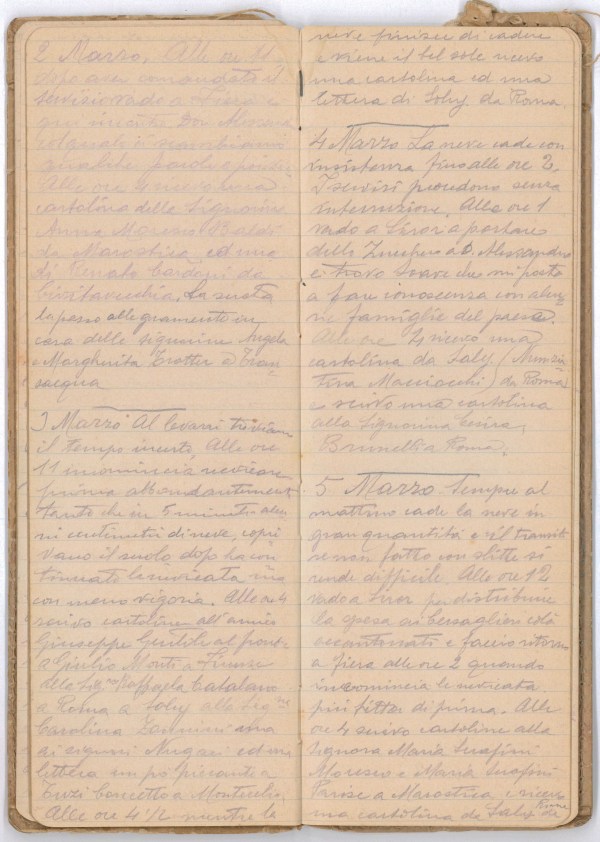 2 Marzo. Alle ore 11
dopo aver comandato il
servizio vado a Fiera e
qui incontro Don
col quale ci scambiamo
qualche parola e poi
Alle ore 4 ricevo una
cartolina delle Signorine
Anna Moresco Baldi
da Marostica ed una
di Renato Cardoni da
Civitavecchia. La serata
la passo allegramente in
casa delle signorine Angela
e Margherita Trotter a Tran
sacqua
3 Marzo Al levarsi troviamo
il tempo incerto. Alle ore
11 incomincia nevicare
prima abbondantemente
tanto che in 5 minuti alcu
ni centimetri di neve, copri
vano il suolo dopo ha con
tinuato la nevicata ma
con meno vigoria. Alle ore 4
scrivo cartoline all'amico
Giuseppe Gentile al fronte
a Giulio Monti a Firenze
della Sig.na Raffaela Catalano
a Roma a Soly alle Sig.ne
Carolina
ai signori ed una
lettera un pò piccante a
Concetto a Montecelio.
Alle ore 4 1/2 mentre la
neve finisce di cadere
e viene il bel sole ricevo
una cartolina ed una
lettera di Soly da Roma.
4 Marzo La neve cade con
insistenza fino alle ore 2.
I servizi procedono senza
interruzione. Alle ore 1
vado a Siror a portare
dello Zucchero a D. Alessandro
e trovo Soave che mi porta
a fare conoscenza con alcu
ne famiglie del paese.
Alle ore 4 ricevo una
cartolina da Soly (Nunzia
tina Macciacchi) da Roma
e scrivo una cartolina
alla Signorina Cesira
Brunelli a Roma.
5 Marzo Sempre al
mattino cade la neve in
gran quantità e il transit
se non fatto con slitte si
rende difficile. Alle ore 12
vado a Siror per distribuire
la spesa ai bersaglieri colà
accantonati e faccio ritorno
a Fiera alle ore 2 quando
incomincia la nevicata
più fitta di prima. Alle
ore 4 scrivo cartoline alla
Signora Maria Serafini
Moresco e Maria Serafini
Parise a Marostica e ricevo
una cartolina da Soly di